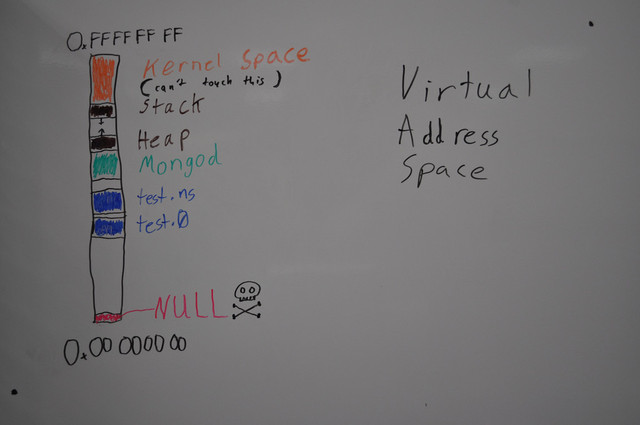 0xFFFFFFFF
Kernel Space
(can't touch this)
Stack
Heap
Mongod
test.ns
test.0
NULL
0x00000000
Virtual
Address
Space